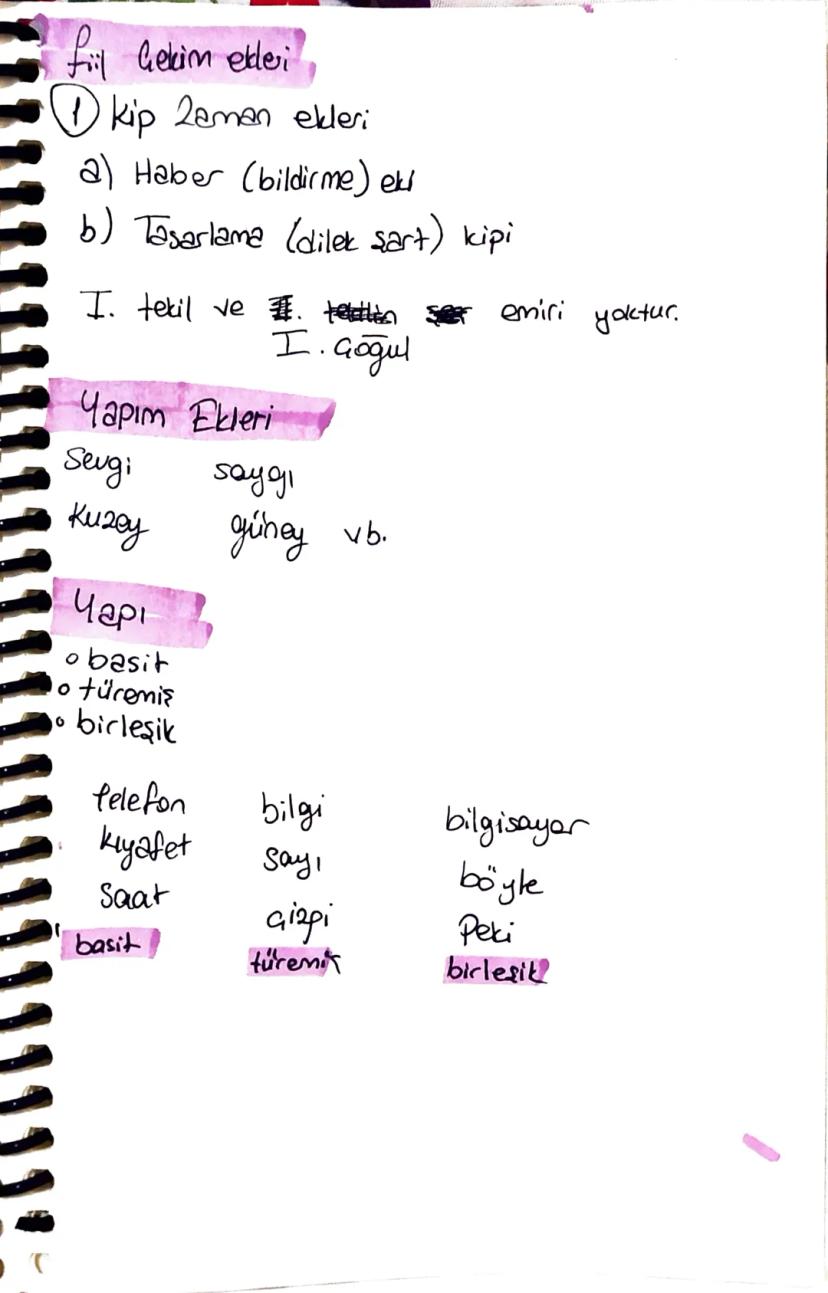 fiil Çekim ekleri
1 Kip Zaman ekleri
a) Haber (bildirme) eki
b) Tasarlama (dilek şart) kipi
I. tekil ve emiri yoktur.
I. Çoğul
Yapım Ekleri
Sevgi saygı
Kuzey güney vb.
Yapı
o basit
o türemiş
o birleşik
telefon bilgi bilgisayar
kıyafet sayı böyle
saat çizgi Peki
basit türemiş birleşik